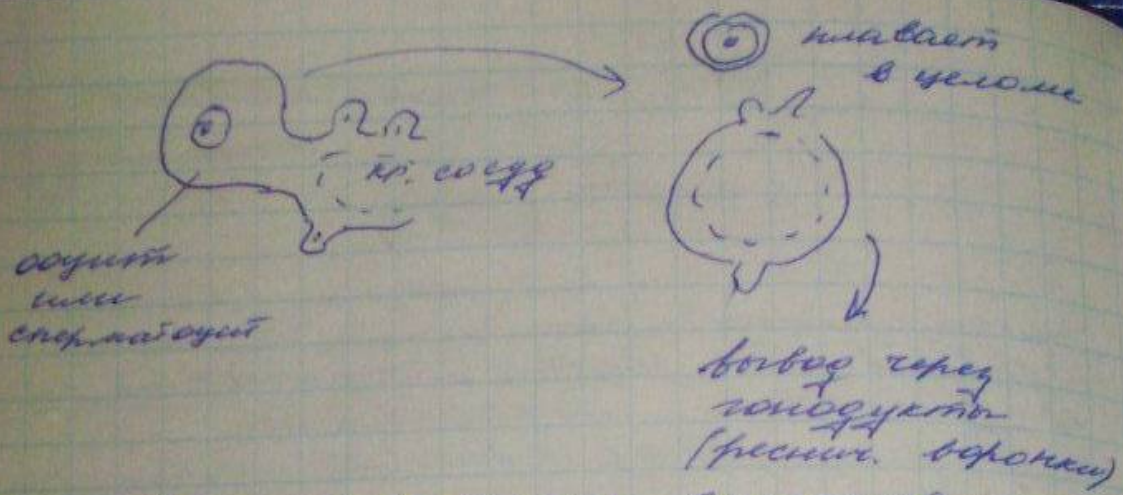 плавает
в целоме
кр. сосуд
ооцит
или
сперматоцит
вывод через
гонодукты
(реснич. воронки)